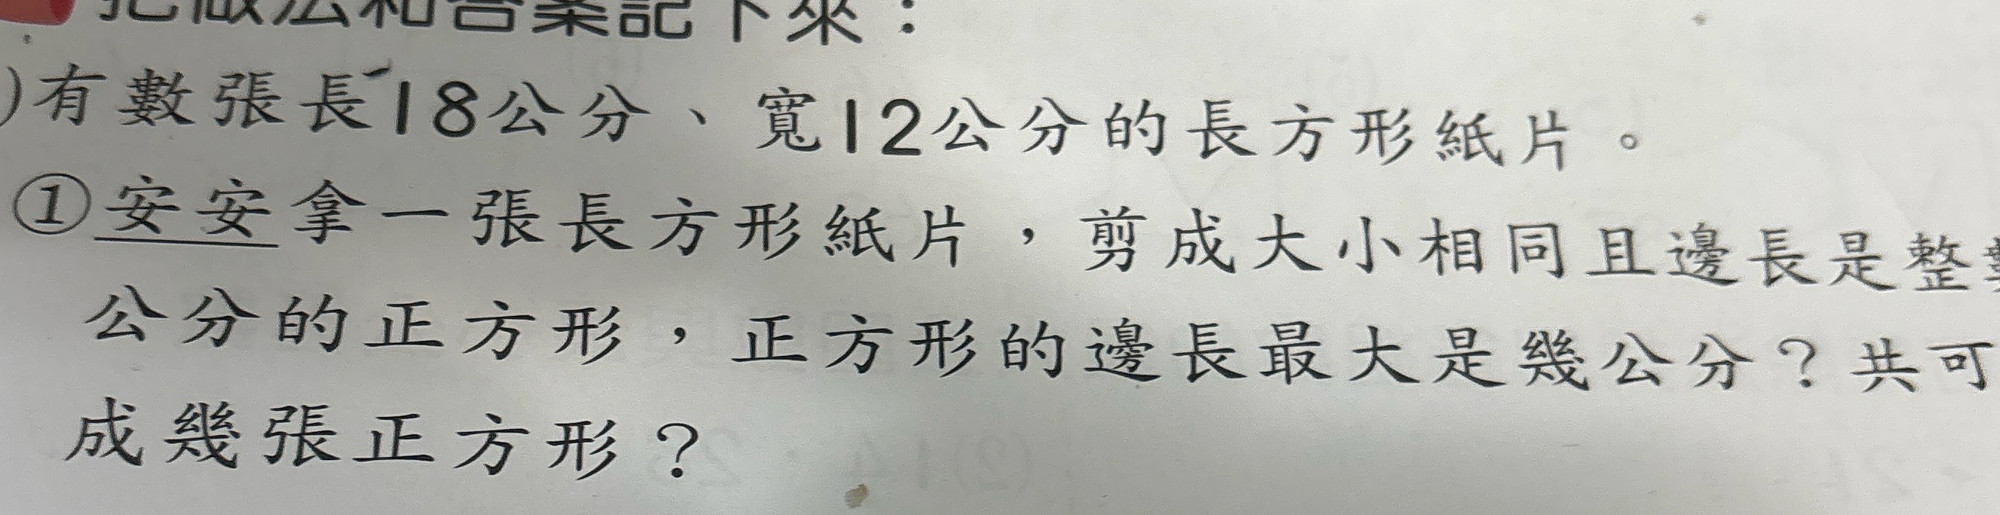 把做法和答案記下來：
)有數張長18公分、寬12公分的長方形紙片。
①安安拿一張長方形紙片，剪成大小相同且邊長是整數
公分的正方形，正方形的邊長最大是幾公分？共可
成幾張正方形？